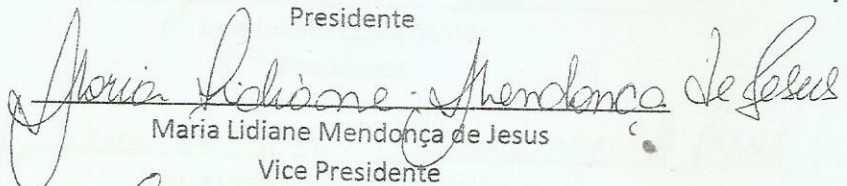 Presidente
Maria Lidiane Mendonça de Jesus
Maria Lidiane Mendonça de Jesus
Vice Presidente